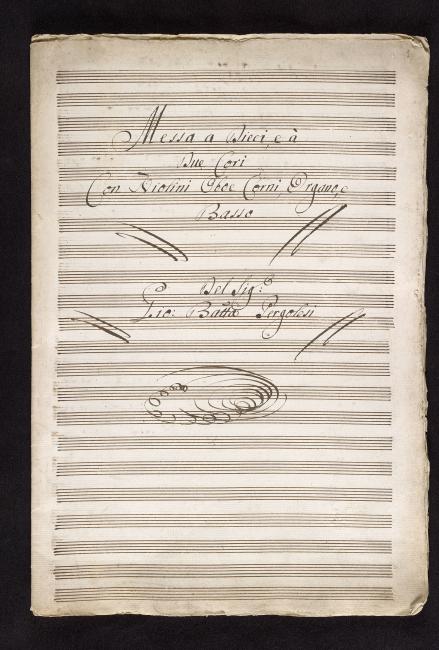 Messa a Dieci, e à
Due Cori
Con Violini Oboe Corni Organo, e
Basso
Del Sig.e
Gio: Batta Pergolesi